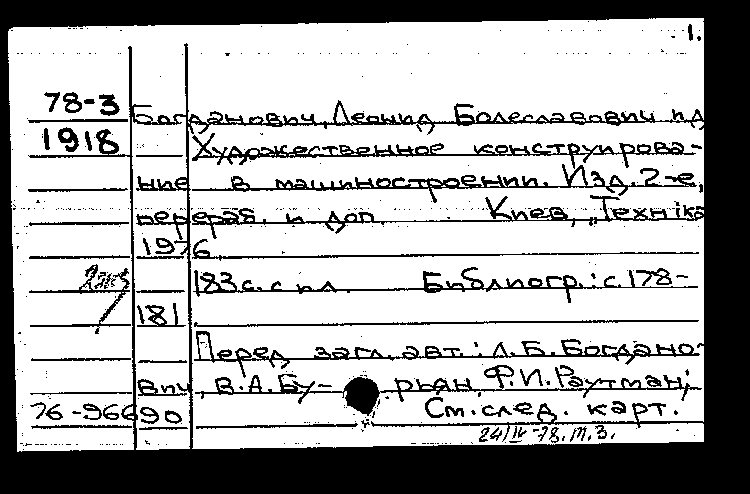 1.
78-3 Богданович, Леонид Болеславович и д
1918 Художественное конструирова-
ние в машиностроении. Изд. 2-е,
перераб. и доп. Киев, „Технiка
1976.
183 с. с ил. Библиогр.: с. 178-
181.
Перед загл. авт.: Л. Б. Богдано-
вич, В. А. Бу- рьян, Ф. И. Раутман;
76-96690 См. след. карт.
24/IV-78. М. З.